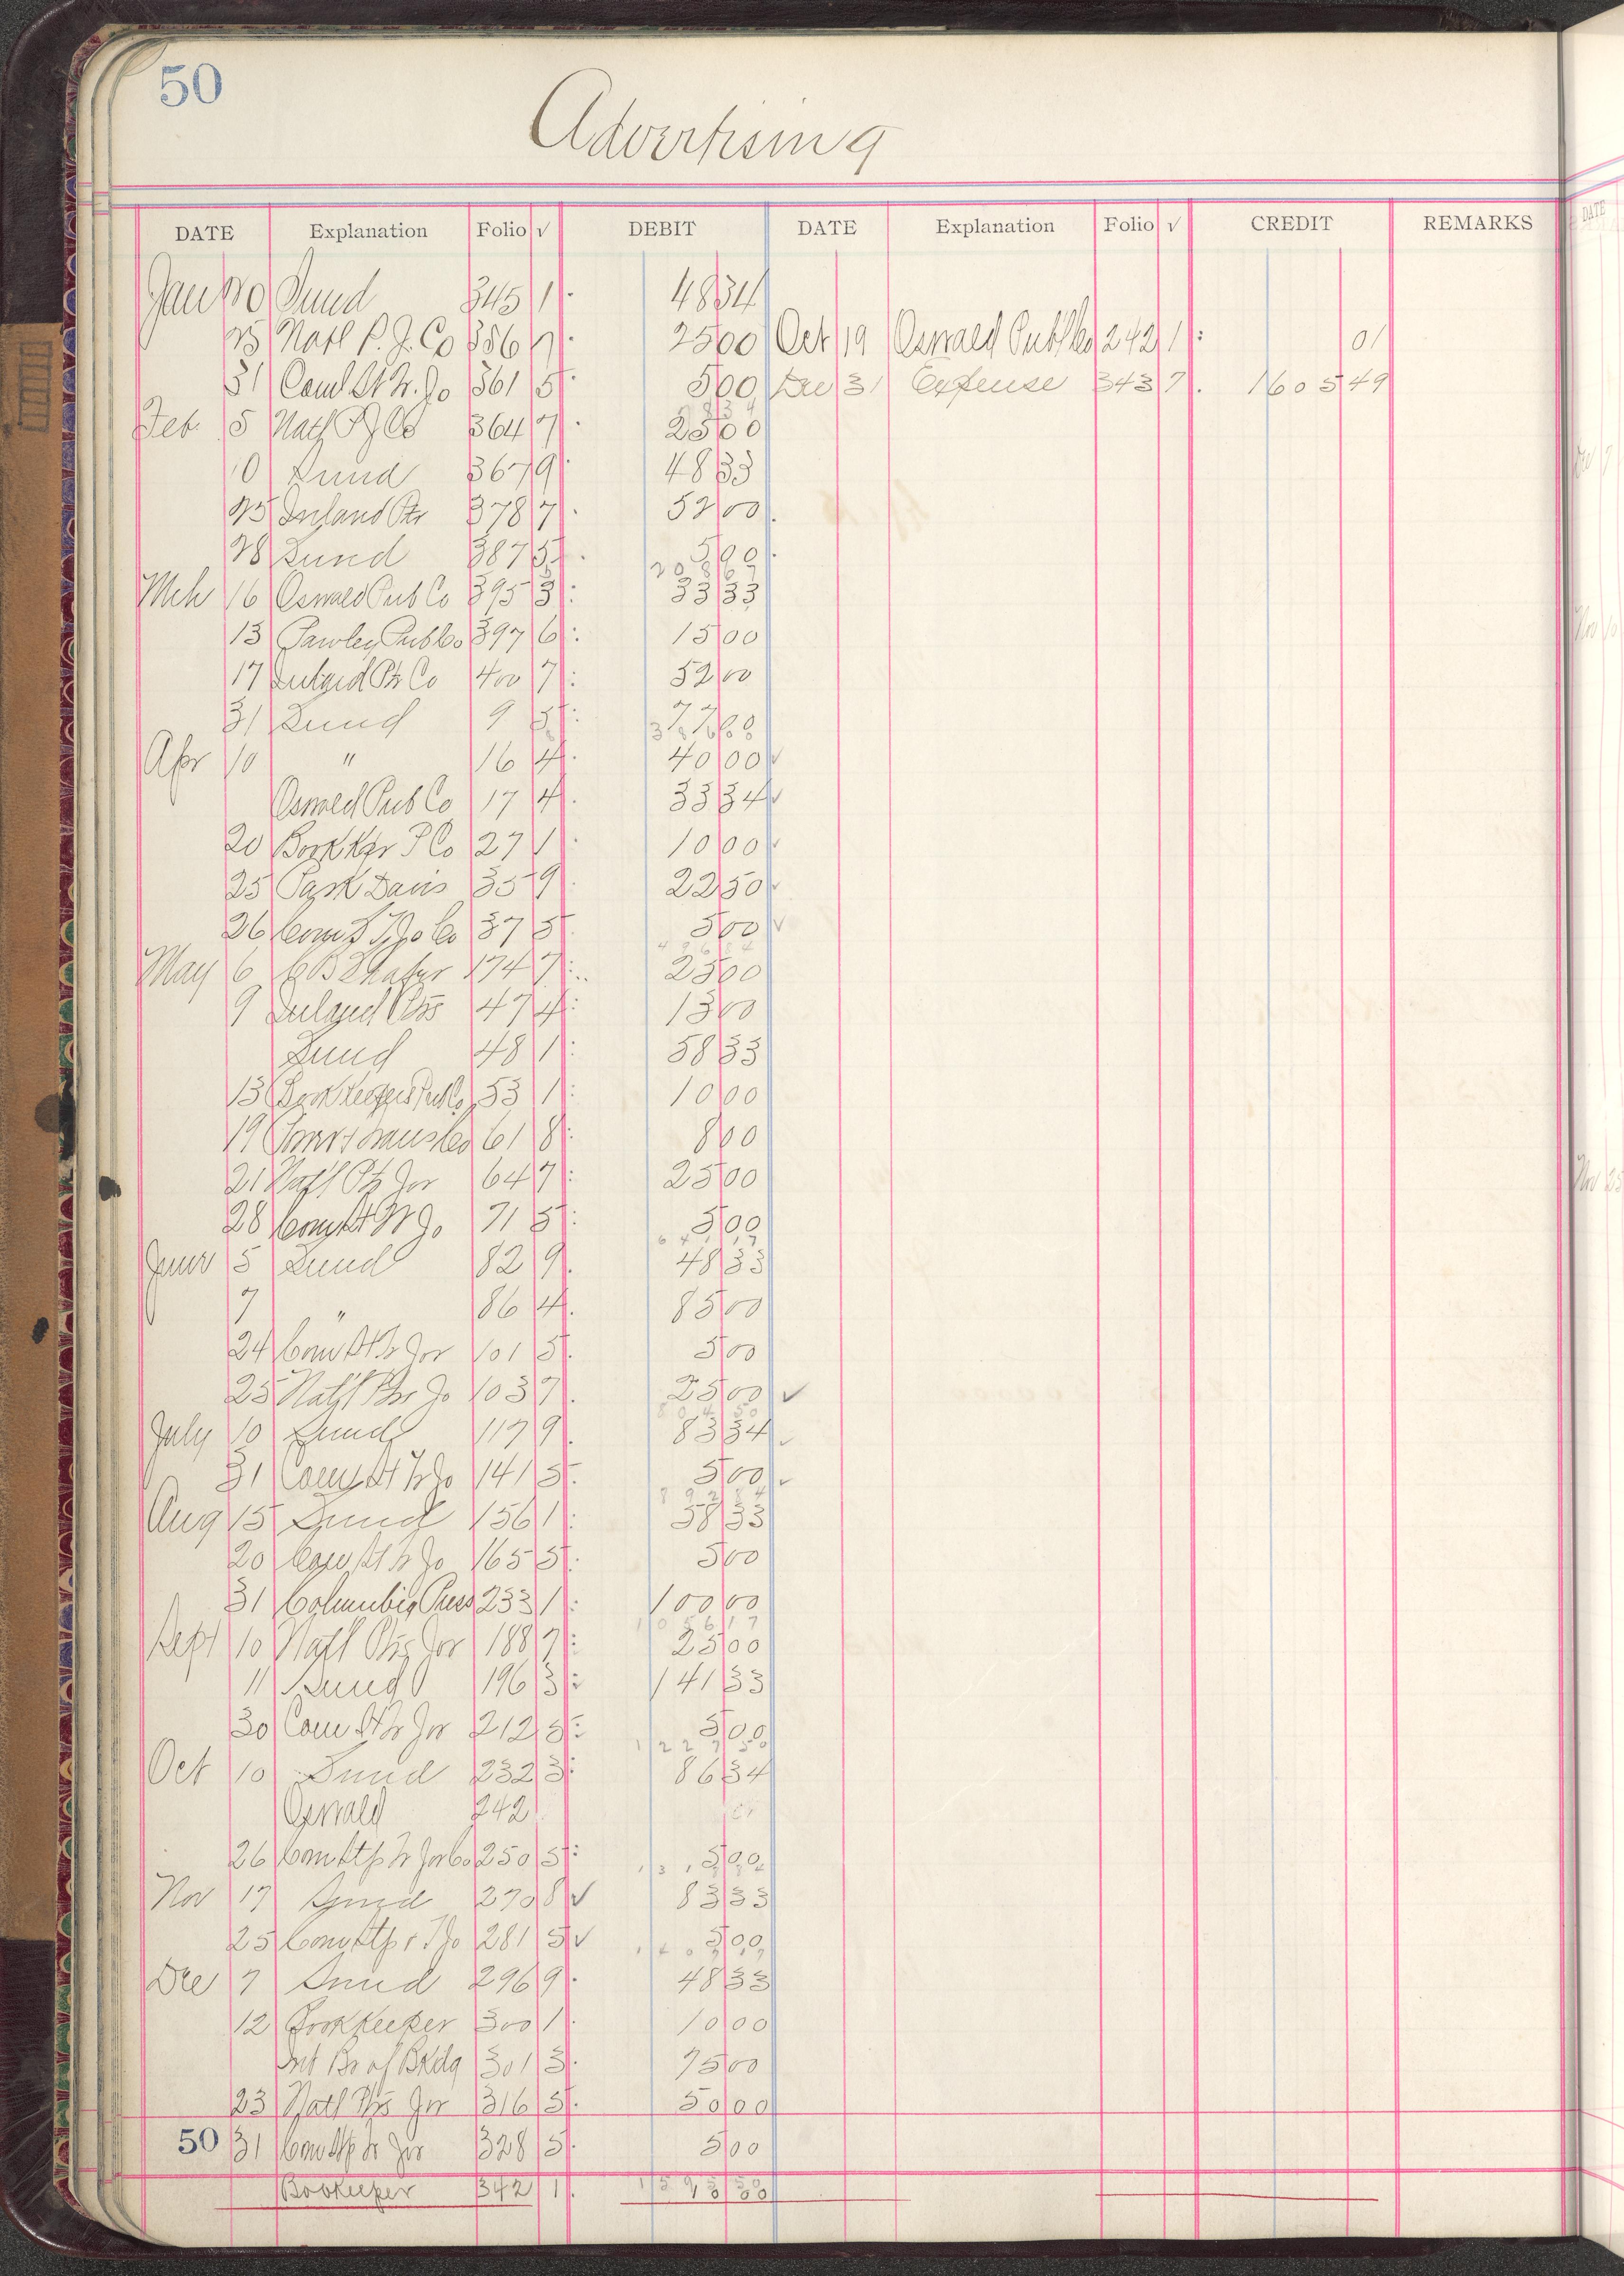 50
Advertising
DATE Explanation Folio √ DEBIT DATE Explanation Folio √ CREDIT REMARKS
Jan 10 Sund 345 1 48 34
25 Natl P. J. Co 356 7 25 00 Oct 19 Oswald Pub Co 242 1 01
31 Coml St Tr. Jo 361 5 5 00 Dec 31 Expense 343 7 1605 49
78 34
Feb 5 Natl P J Co 364 7 25 00
10 Sund 367 9 48 33
25 Inland Ptr 378 7 52 00
28 Sund 387 5 5 00
208 67
Mch 16 Oswald Pub Co 395 3 33 33
13 Pawley Pub Co 397 6 15 00
17 Inland Ptr Co 400 7 52 00
31 Sund 9 5 77 00
Apr 10 " 16 4 40 00 √
Oswald Pub Co 17 4 33 34 √
20 Bookkpr P Co 27 1 10 00 √
25 Park Davis 35 9 22 50 √
26 Com S T Jo Co 37 5 5 00 √
496 84
May 6 C B Shafer 174 7 25 00
9 Inland Ptrs 47 4 13 00
Sund 48 1 58 33
13 Bookkeepers Pub Co 53 1 10 00
19 61 8 8 00
21 Nat'l Ptr Jor 64 7 25 00
28 Com St Tr Jo 71 5 5 00
641 17
June 5 Sund 82 9 48 33
7 " 86 4 85 00
24 Com St Tr Jor 101 5 5 00
25 Nat'l Ptr Jo 103 7 25 00 √
804 50
July 10 Sund 117 9 83 34 √
31 Com St Tr Jo 141 5 5 00 √
892 84
Aug 15 Sund 156 1 58 33
20 Com St Tr Jo 165 5 5 00
31 Columbia Press 233 1 100 00
1056 17
Sept 10 Nat'l Ptrs Jor 188 7 25 00
11 Sund 196 3 141 33
30 Com St Tr Jor 212 5 5 00
1227 50
Oct 10 Sund 232 3 86 34
Oswald 242 01
26 Com Stp Tr Jor Co 250 5 5 00
Nov 17 Sund 270 8 √ 83 33
25 Com Stp r T Jo 281 5 √ 5 00
Dec 7 Sund 296 9 48 33
12 Bookkeeper 300 1 10 00
Int Br of Bkdg 301 3 75 00
23 Natl Ptrs Jor 316 5 50 00
50 31 Com Stp Tr Jor 328 5 5 00
Bookeeper 342 1